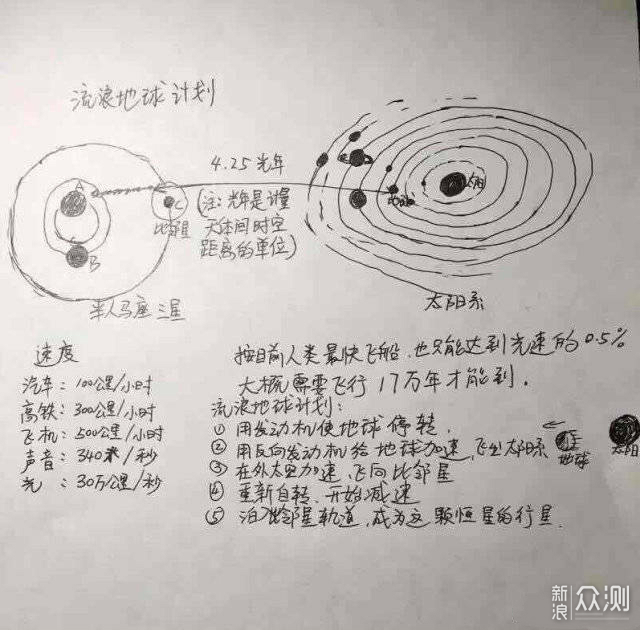 流浪地球计划
4.25光年
(注:光年是计量
天体间时空
距离的单位)
A
B
C
比邻星
半人马座三星
太阳
地球
太阳系
速度
汽车:100公里/小时
高铁:300公里/小时
飞机:500公里/小时
声音:340米/秒
光:30万公里/秒
按目前人类最快飞船,也只能达到光速的0.5%
大概需要飞行17万年才能到.
流浪地球计划:
① 用发动机使地球停转.
② 用反向发动机给地球加速,飞出太阳系
③ 在外太空加速,飞向比邻星
④ 重新自转.开始减速
⑤ 泊入比邻星轨道,成为这颗恒星的行星.
地球
太阳
新浪众测